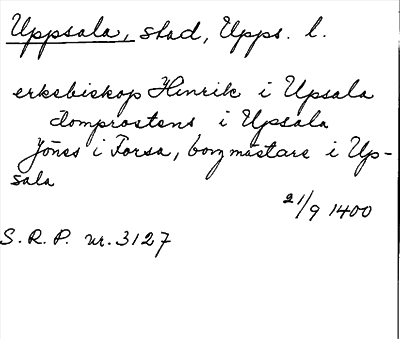 Uppsala, stad, Upps. l.
erkebiskop Hinrik i Upsala
domprostens i Upsala
Jönes i Forsa, borgmästare i Up-
sala
21/9 1400
S.R.P. nr. 3127